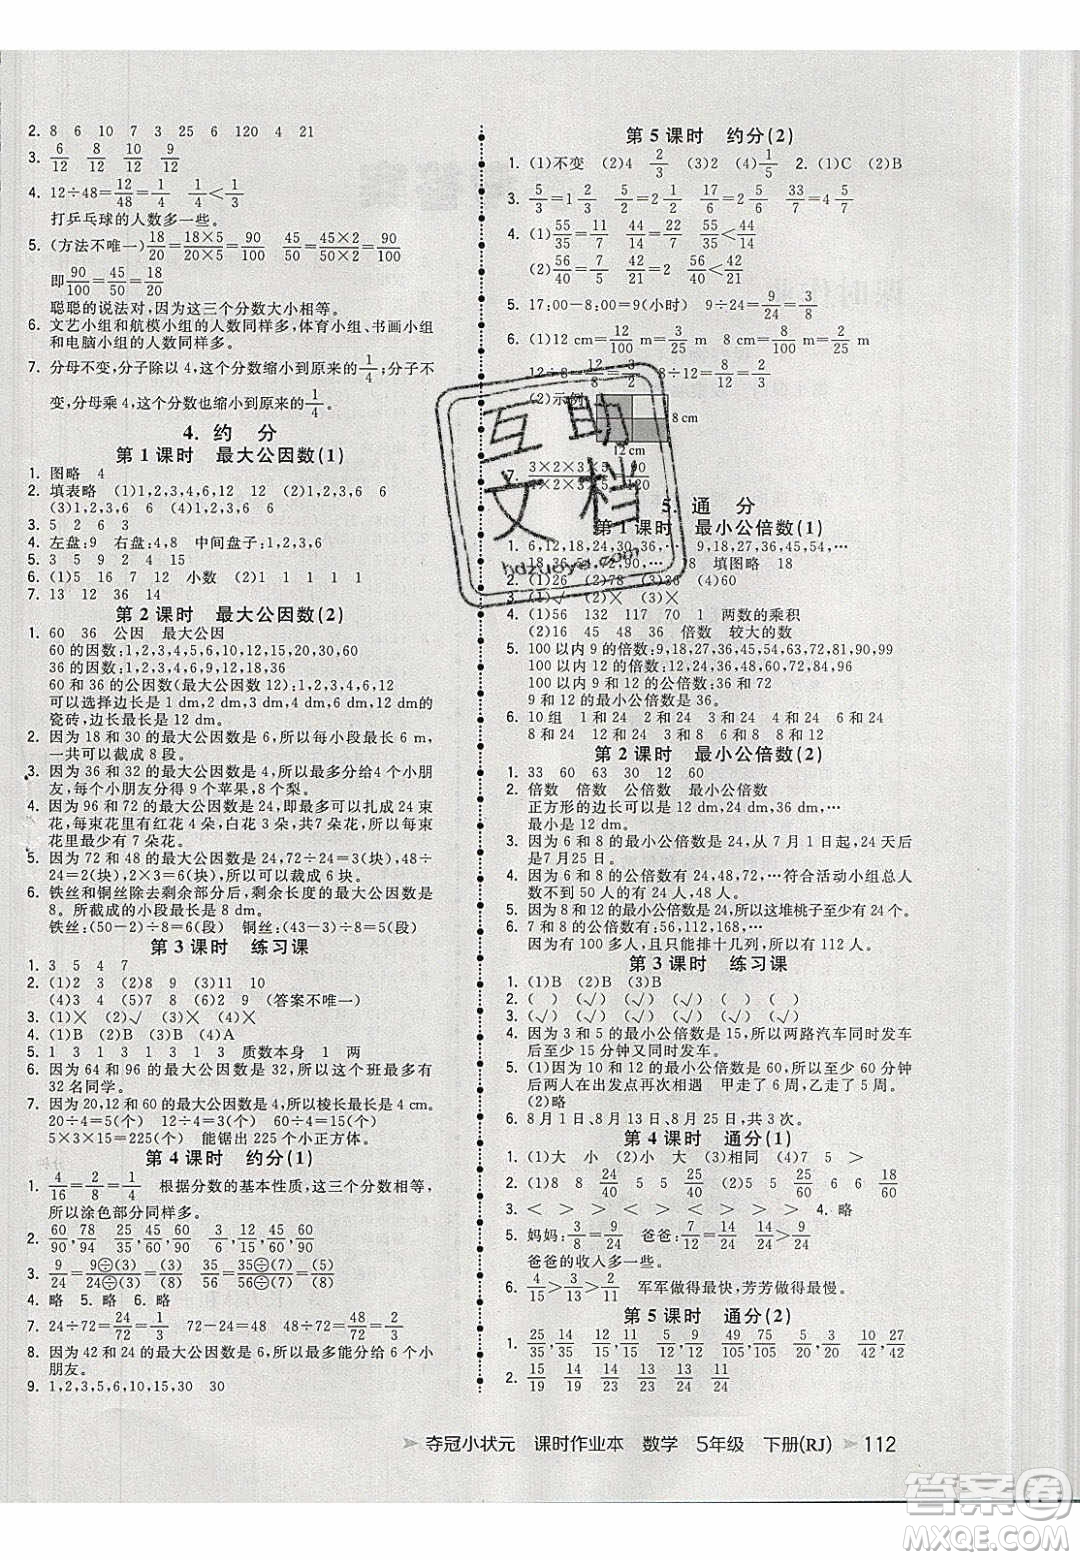 2. 8 6 10 7 3 25 6 120 4 21
3. 6/12 8/12 10/12 9/12
4. 12÷48=12/48=1/4 1/4<1/3
打乒乓球的人数多一些。
5. (方法不唯一)18/20=18×5/20×5=90/100 45/50=45×2/50×2=90/100
即90/100=45/50=18/20
聪聪的说法对,因为这三个分数大小相等。
6. 文艺小组和航模小组的人数同样多,体育小组、书画小组
和电脑小组的人数同样多。
7. 分母不变,分子除以4,这个分数缩小到原来的1/4;分子不
变,分母乘4,这个分数也缩小到原来的1/4。
4. 约 分
第1课时 最大公因数(1)
1. 图略 4
2. 填表略 (1)1,2,3,4,6,12 (2)1,2,3,6
(3)1,2,3,6 6
3. 5 2 6 3
4. 左盘:9 右盘:4,8 中间盘子:1,2,3,6
5. 3 5 9 2 6
6. (1)5 16 7 12 小数 (2)1 1 1 1
7. 13 12 12 14
第2课时 最大公因数(2)
1. 60 36 公因 最大公因
60的因数:1,2,3,4,5,6,10,12,15,20,30,60
36的因数:1,2,3,4,6,9,12,18,36
60和36的公因数(最大公因数12):1,2,3,4,6,12
可以选择边长是1 dm,2 dm,3 dm,4 dm,6 dm,12 dm的
瓷砖,边长最长是12 dm。
2. 因为18和30的最大公因数是6,所以每小段最长是6厘米,
一共可以截成8段。
3. 因为36和32的最大公因数是4,所以最多分给4个小朋
友,每个小朋友得9个苹果,8个梨。
4. 因为96和72的最大公因数是24,即最多可以扎成24束
花,每束花里有红花4朵,白花3朵,共7朵花,所以每束
花里最少有7朵花。
5. 因为72和48的最大公因数是24,72÷24=3(块),48÷
24=2(块),3×2=6(块),所以至少可以裁成6块。
6. 铁丝和铜丝除去剩余部分后,剩余长度的最大公因数是
8。所截成的小段最长是8分米。
铁丝:(50-2)÷8=6(段) 铜丝:(43-3)÷8=5(段)
第3课时 练习课
1. 3 5 4 7
2. (1)21 22 (2)8 9 (3)11 10
(4)3 4 (5)7 9 (答案不唯一)
3. (1)× (2)× (3)√ (4)×
4. (1)B (2)B (3)C (4)A
5. 1 3 1 3 1 3 3 质数本身 1 两
6. 因为64和96的最大公因数是32,所以这个班最多有
32名同学。
7. 因为20,12和60的最大公因数是4,所以棱长最长是4 cm。
20÷4=5(个) 12÷4=3(个) 60÷4=15(个)
5×3×15=225(个) 能锯出225个小正方体。
第4课时 约分(1)
1. 4/16=2/8=1/4 根据分数的基本性质,这三个分数相等,
所以涂色部分同样多。
2. 60/90,78/94 25/60,45/90 3/12,15/45,30/60
3. 9/24=9÷(3)/24÷(3)=(3)/(8) 35/56=35÷(7)/56÷(7)=(5)/(8)
4. 略 5. 略 6. 略
7. 24÷72=24/72=1/3
8. 因为42和24的最大公因数是6,所以最多能分给6个小
朋友。
9. 1,2,3,5,6,10,15,30 30
第5课时 约分(2)
1. (1)不变 (2)4 2/3 (3)2 (4)1/5 2. (1)C (2)B
4. (1)55/35=11/7 44/14=22/7 55/35<44/14
(2)56/40=7/5 42/21=2 56/40<42/21
5. 17:00-8:00=9(小时) 9÷24=9/24=3/8
6. (1)12 cm=12/100 m=3/25 m 8 cm=8/100 m=2/25 m
12÷8=12/8=3/2 8÷12=8/12=2/3
(2)示例:
8 cm
12 cm
5. 通 分
第1课时 最小公倍数(1)
1. 6,12,18,24,30,36,… 9,18,27,36,45,54,…
18,36,54,72,90,… 18 填图略 18
2. (1)26 (2)78 (3)36 (4)60
3. (1)√ (2)× (3)√
4. (1)56 132 117 70 1 两数的乘积
(2)16 45 48 36 倍数 较大的数
5. 100以内9的倍数:9,18,27,36,45,54,63,72,81,90,99
100以内12的倍数:12,24,36,48,60,72,84,96
100以内9和12的公倍数:36,72
9和12的最小公倍数是36。
6. 10组 1和24 2和24 4和24 6和24
8和24 12和24 3和8 6和8 24和24
第2课时 最小公倍数(2)
1. 33 60 63 30 12 60
2. 倍数 倍数 公倍数 最小公倍数
正方形的边长可以是12 dm,24 dm,36 dm,…
最小是12 dm。
3. 因为6和8的最小公倍数是24,从7月1日起,24天后
是7月25日。
4. 因为6和8的公倍数有24,48,72,…符合活动小组总人
数在30人以内的只有24人。
5. 因为8和12的最小公倍数是24,所以这堆桃子至少有24个。
6. 7和8的公倍数有:56,112,168,…
因为有100多人,所以只能排十几列,有112人。
第3课时 练习课
1. (1)B (2)B (3)B
2. ( ) (√) (√) (√) ( ) ( )
3. (√) (√) (√) (√) (√) (√)
4. 因为3和5的最小公倍数是15,所以两路汽车同时发车
后至少15分钟又同时发车。
5. (1)因为10和12的最小公倍数是60,所以至少60分钟
后两人在出发点再次相遇 甲走了7圈,乙走了6圈。
(2)略
6. 8月1日、8月13日、8月25日,共3次。
第4课时 通分(1)
1. (1)大 小 (2)小 大 (3)相同 (4)7 5 >
3. < > < > > > 4. 略
5. 妈妈:3/8=9/24 爸爸:7/12=14/24 14/24>9/24
爸爸的收入多一些。
6. 4/15>3/13>2/11 军军做得最快,芳芳做得最慢。
第5课时 通分(2)
夺冠小状元 课时作业本 数学 5年级 下册(RJ) 112
互助
文档
hdzuoye.com
答案圈
MXQE.COM